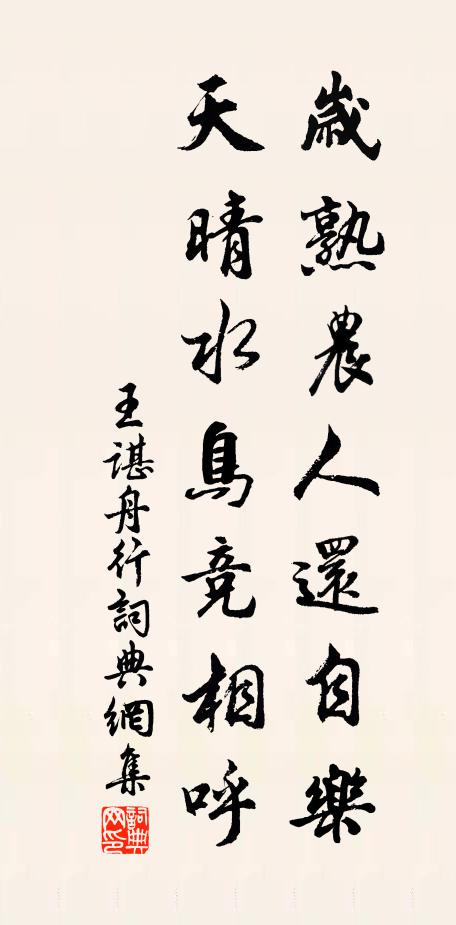 歲熟農人還自樂
天晴水鳥竞相呼
王諶舟行詞典網集
詞典网印